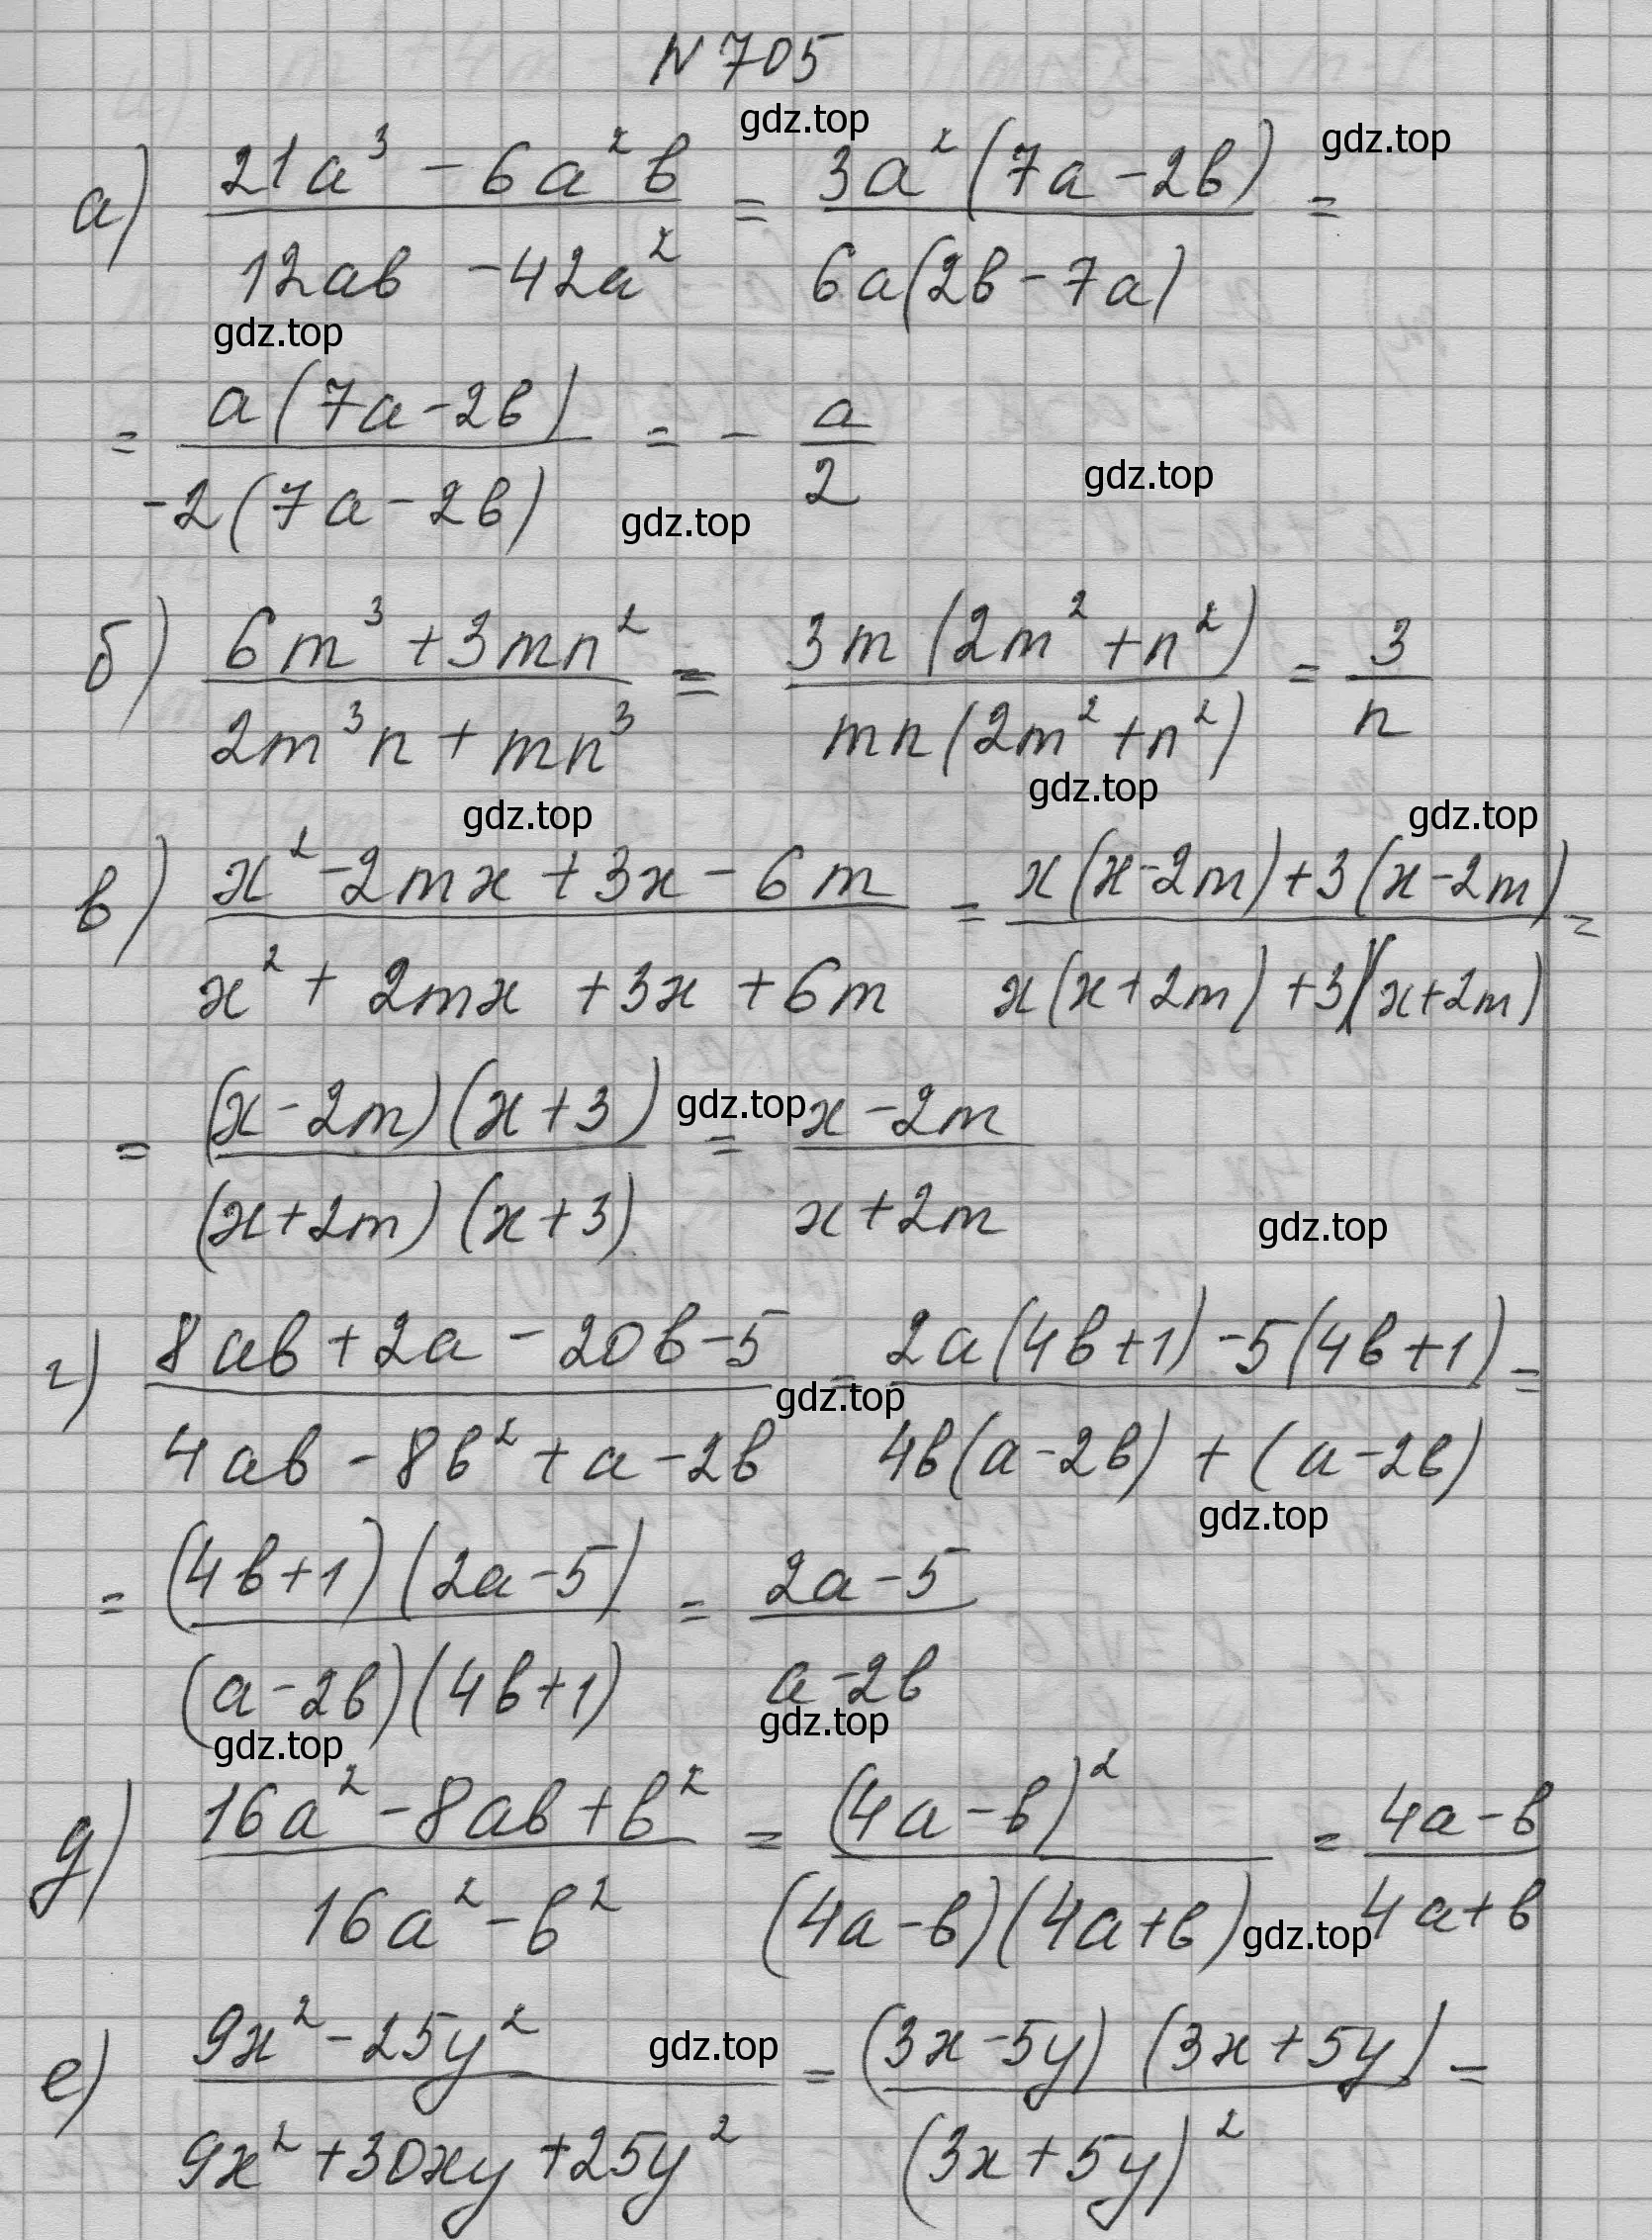 N 705
gdz.top
gdz.top
а) (21a³ - 6a²b)/(12ab - 42a²) = (3a²(7a - 2b))/(6a(2b - 7a)) =
gdz.top
= (a(7a - 2b))/(-2(7a - 2b)) = - a/2
gdz.top
gdz.top
б) (6m³ + 3mn²)/(2m³n + mn³) = (3m(2m² + n²))/(mn(2m² + n²)) = 3/n
gdz.top
gdz.top
gdz.top
в) (x² - 2mx + 3x - 6m)/(x² + 2mx + 3x + 6m) = (x(x - 2m) + 3(x - 2m))/(x(x + 2m) + 3(x + 2m)) =
= ((x - 2m)(x + 3))/((x + 2m)(x + 3)) = (x - 2m)/(x + 2m)
gdz.top
gdz.top
г) (8ab + 2a - 20b - 5)/(4ab - 8b² + a - 2b) = (2a(4b + 1) - 5(4b + 1))/(4b(a - 2b) + (a - 2b)) =
gdz.top
gdz.top
= ((4b + 1)(2a - 5))/((a - 2b)(4b + 1)) = (2a - 5)/(a - 2b)
gdz.top
gdz.top
д) (16a² - 8ab + b²)/(16a² - b²) = (4a - b)²/((4a - b)(4a + b)) = (4a - b)/(4a + b)
gdz.top
gdz.top
е) (9x² - 25y²)/(9x² + 30xy + 25y²) = ((3x - 5y)(3x + 5y))/(3x + 5y)² =